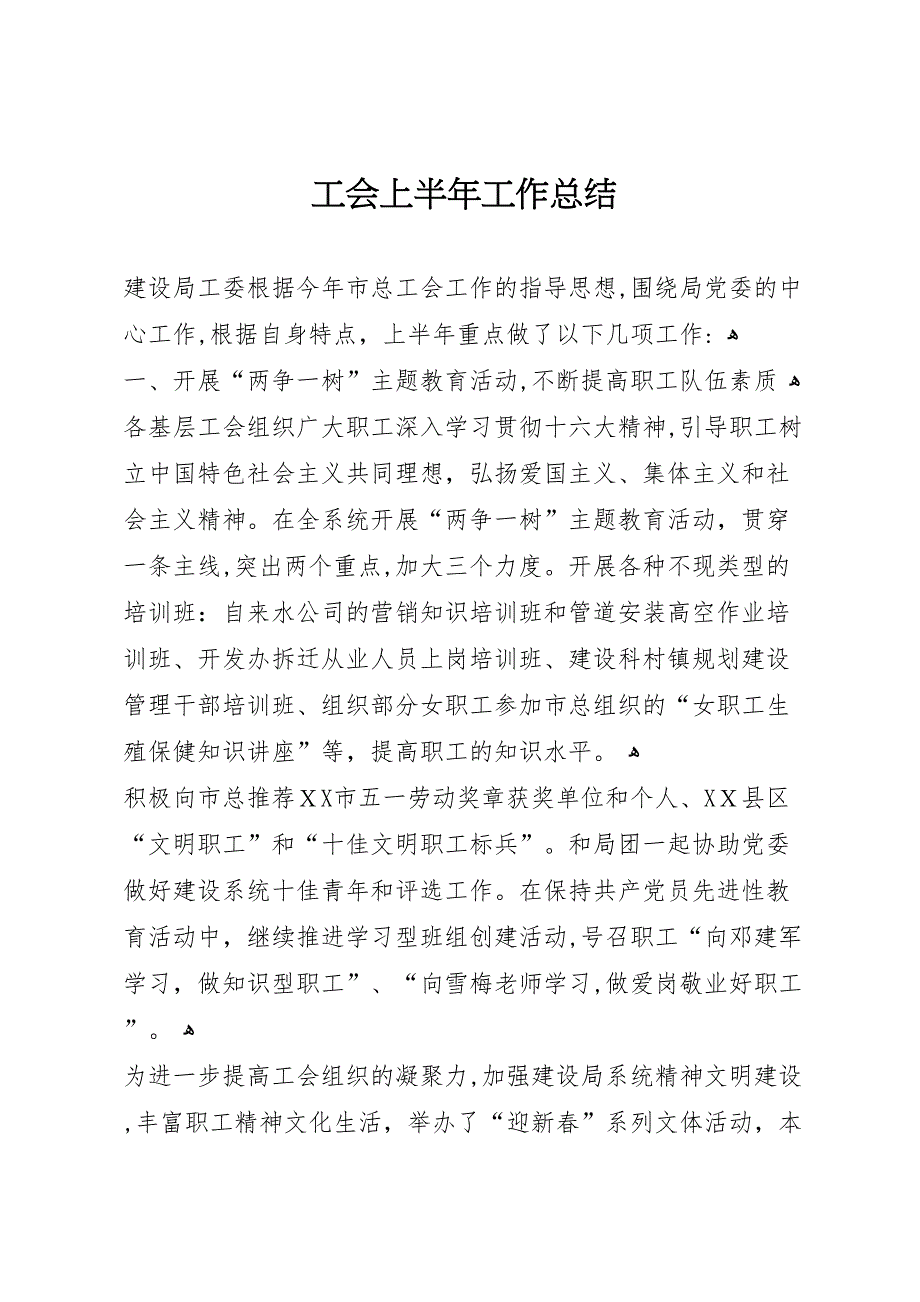 工会上半年工作总结
建设局工委根据今年市总工会工作的指导思想,围绕局党委的中
心工作,根据自身特点，上半年重点做了以下几项工作: ﻫ
一、开展“两争一树”主题教育活动,不断提高职工队伍素质 ﻫ
各基层工会组织广大职工深入学习贯彻十六大精神,引导职工树
立中国特色社会主义共同理想，弘扬爱国主义、集体主义和社
会主义精神。在全系统开展“两争一树”主题教育活动，贯穿
一条主线,突出两个重点,加大三个力度。开展各种不现类型的
培训班：自来水公司的营销知识培训班和管道安装高空作业培
训班、开发办拆迁从业人员上岗培训班、建设科村镇规划建设
管理干部培训班、组织部分女职工参加市总组织的“女职工生
殖保健知识讲座”等，提高职工的知识水平。 ﻫ
积极向市总推荐XX市五一劳动奖章获奖单位和个人、XX县区
“文明职工”和“十佳文明职工标兵”。和局团一起协助党委
做好建设系统十佳青年和评选工作。在保持共产党员先进性教
育活动中，继续推进学习型班组创建活动,号召职工“向邓建军
学习，做知识型职工”、“向雪梅老师学习,做爱岗敬业好职工
”。 ﻫ
为进一步提高工会组织的凝聚力,加强建设局系统精神文明建设
,丰富职工精神文化生活，举办了“迎新春”系列文体活动，本